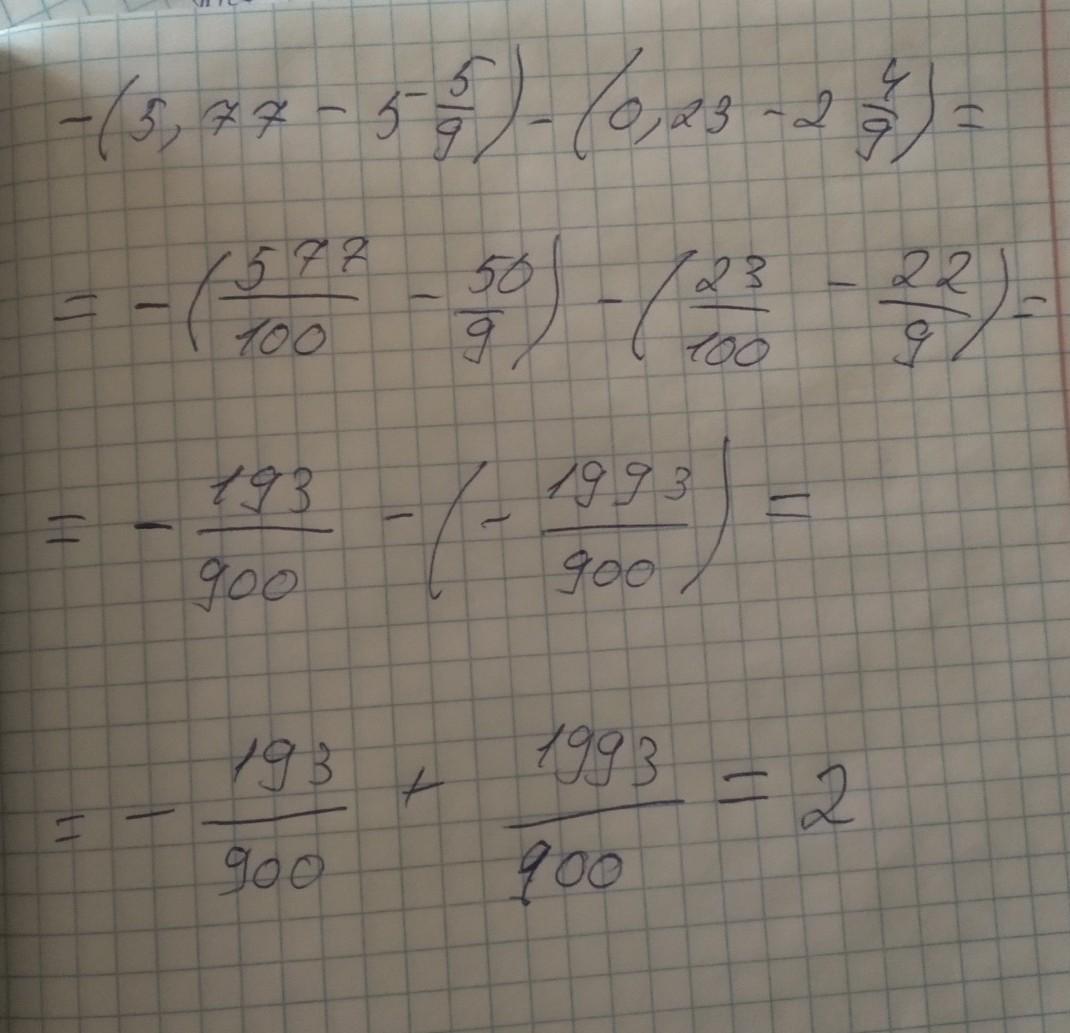 -(5,77 - 5 5/9) - (0,23 - 2 4/9) =
= -(577/100 - 50/9) - (23/100 - 22/9) =
= - 193/900 - (- 1993/900) =
= - 193/900 + 1993/900 = 2